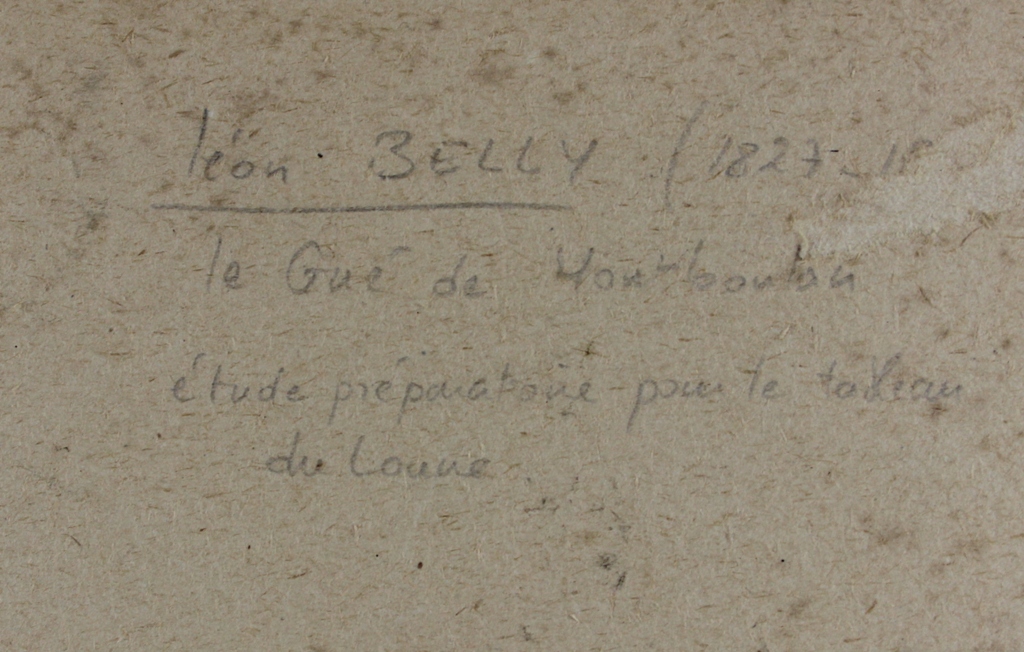 léon BELLY (1827_18
le Gué de Montboulan
étude préparatoire pour le tableau
du Louvre